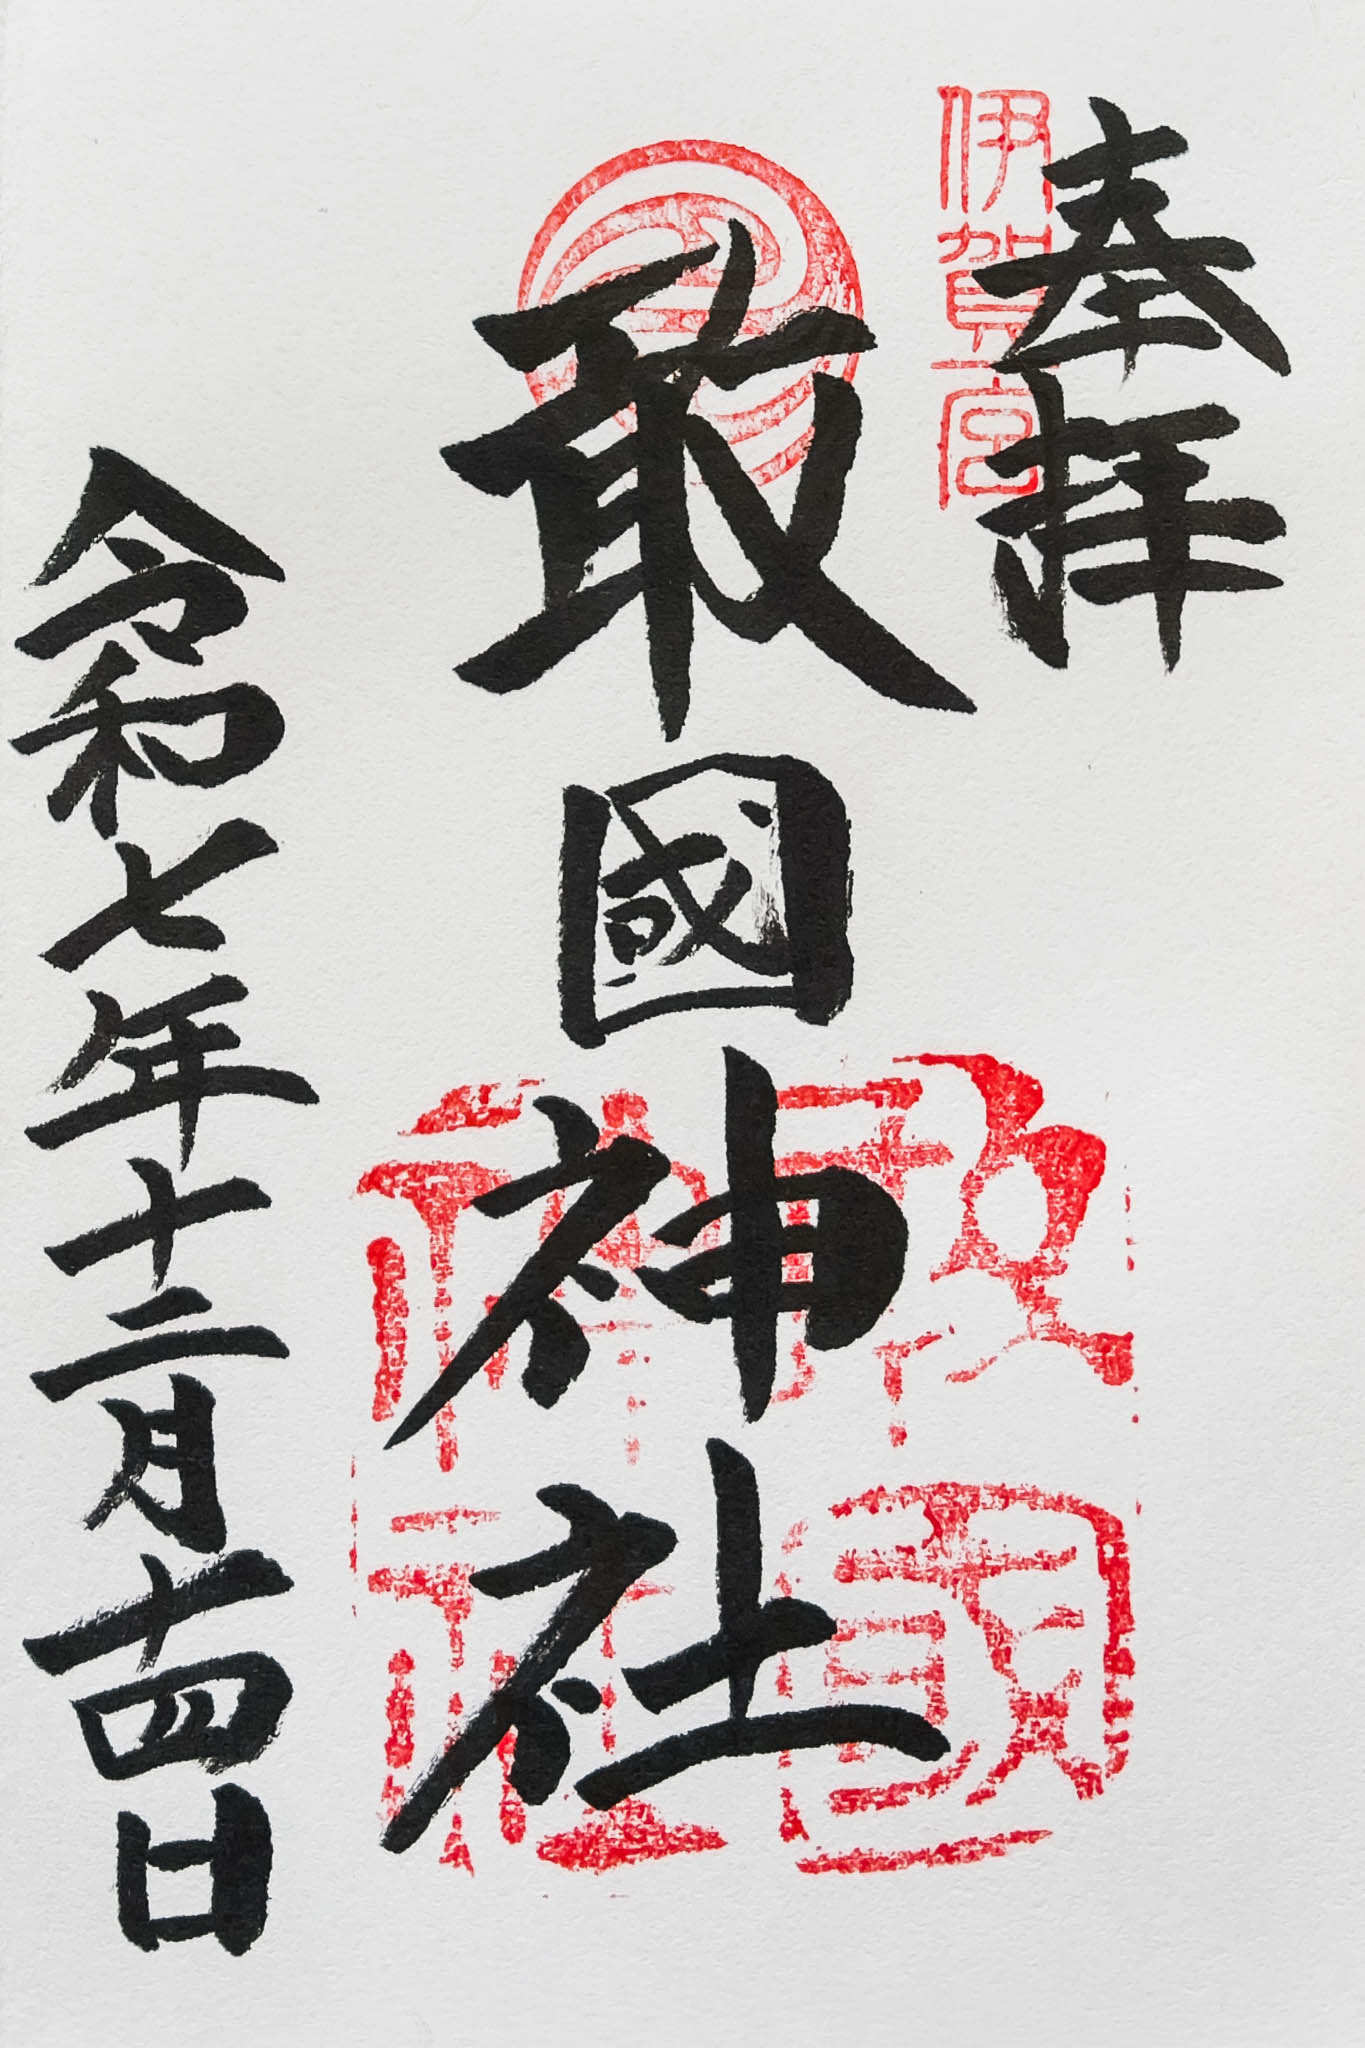 奉拝
伊賀一宮
敢國神社
敢國神社
令和七年十二月十四日